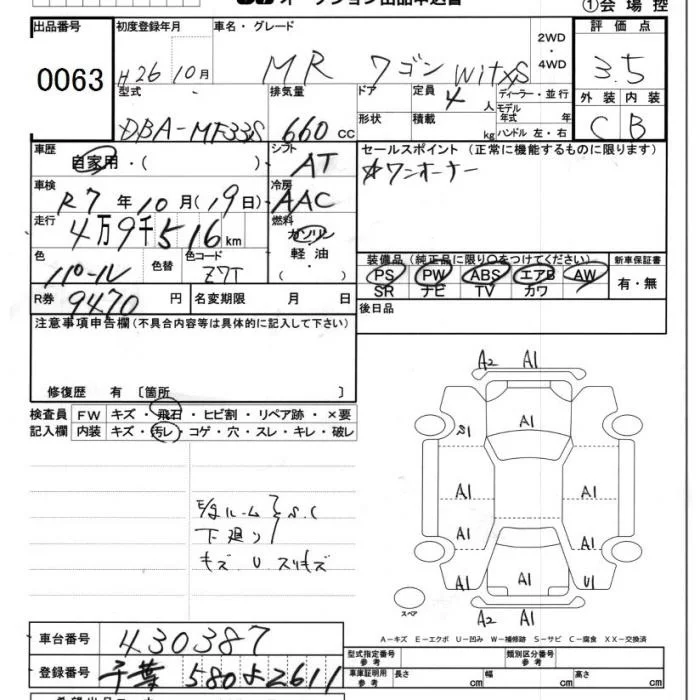 オークション出品申込書 ①会場控
出品番号 初度登録年月 車名・グレード 2WD・4WD 評価点
0063 H26 10月 MR ワゴン witxs 3.5
型式 排気量 ドア 定員 4人 ディーラー・並行 外装 内装
DBA-MF33S 660cc 形状 積載 kg モデル年式 年 ハンドル 左・右 C B
車歴 自家用・( ) シフト AT セールスポイント (正常に機能するものに限ります)
車検 R7年10月(19日) 冷房 AAC ☆ワンオーナー
走行 4万9千516km 燃料 ガソリン
軽油
( )
色 パール 色替 色コード Z7T
装備品 (純正品に限り○をつけてください) 新車保証書
PS PW ABS エアB AW 有・無
SR ナビ TV カワ
R券 9470円 名変期限 月 日 後日品
注意事項申告欄(不具合内容等は具体的に記入して下さい)
修復歴 有 〔箇所 〕
検査員 FW キズ・飛石・ヒビ割・リペア跡・×要
記入欄 内装 キズ・汚レ・コゲ・穴・スレ・キレ・破レ
A2 A1
S1 A1
A1 A1
A1 A1
A1 A1 U1
A2 A1
ルーム S.C
下廻り
キズ U スリキズ
スペア
A-キズ E-エクボ U-凹み W-補修跡 S-サビ C-腐食 XX-交換済
車台番号 430387 型式指定番号 参考 類別区分番号 参考
登録番号 千葉 580 よ 2611 車庫証明用 参考 長さ cm 幅 cm 高さ cm